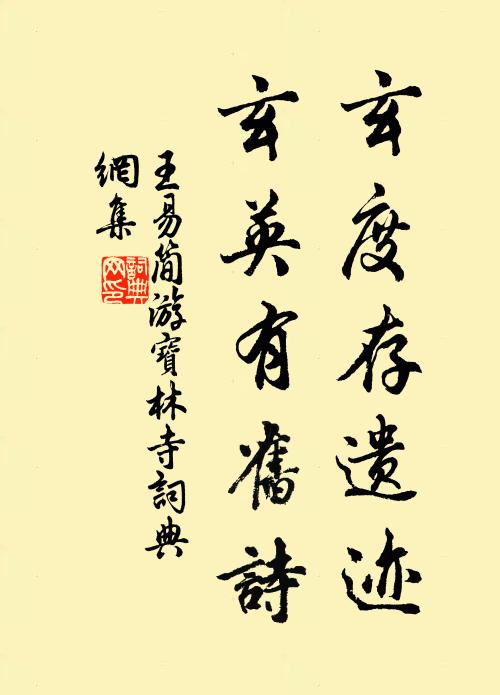 玄度存遗迹
玄英有舊詩
王易简游寶林寺詞典
網集
詞典
网印